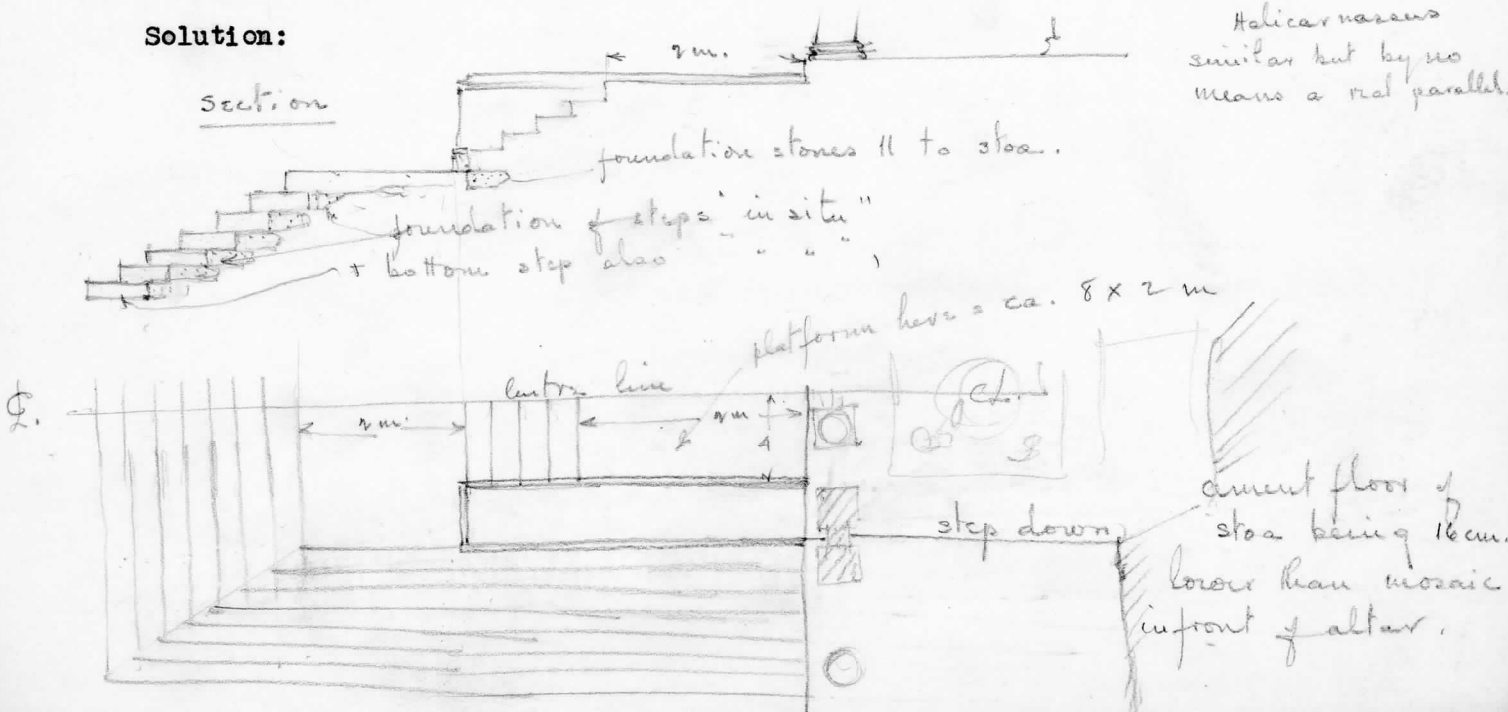 Solution:
Halicarnassus
similar but by no
means a real parallel.
2 m.
Section
foundation stones 11 to stoa.
foundation of steps "in situ"
+ bottom step also " " ,
platform here = ca. 8 x 2 m
centre line
℄.
2 m.
2 m
4
step down
cement floor of
stoa being 16 cm.
lower than mosaic
in front of altar.